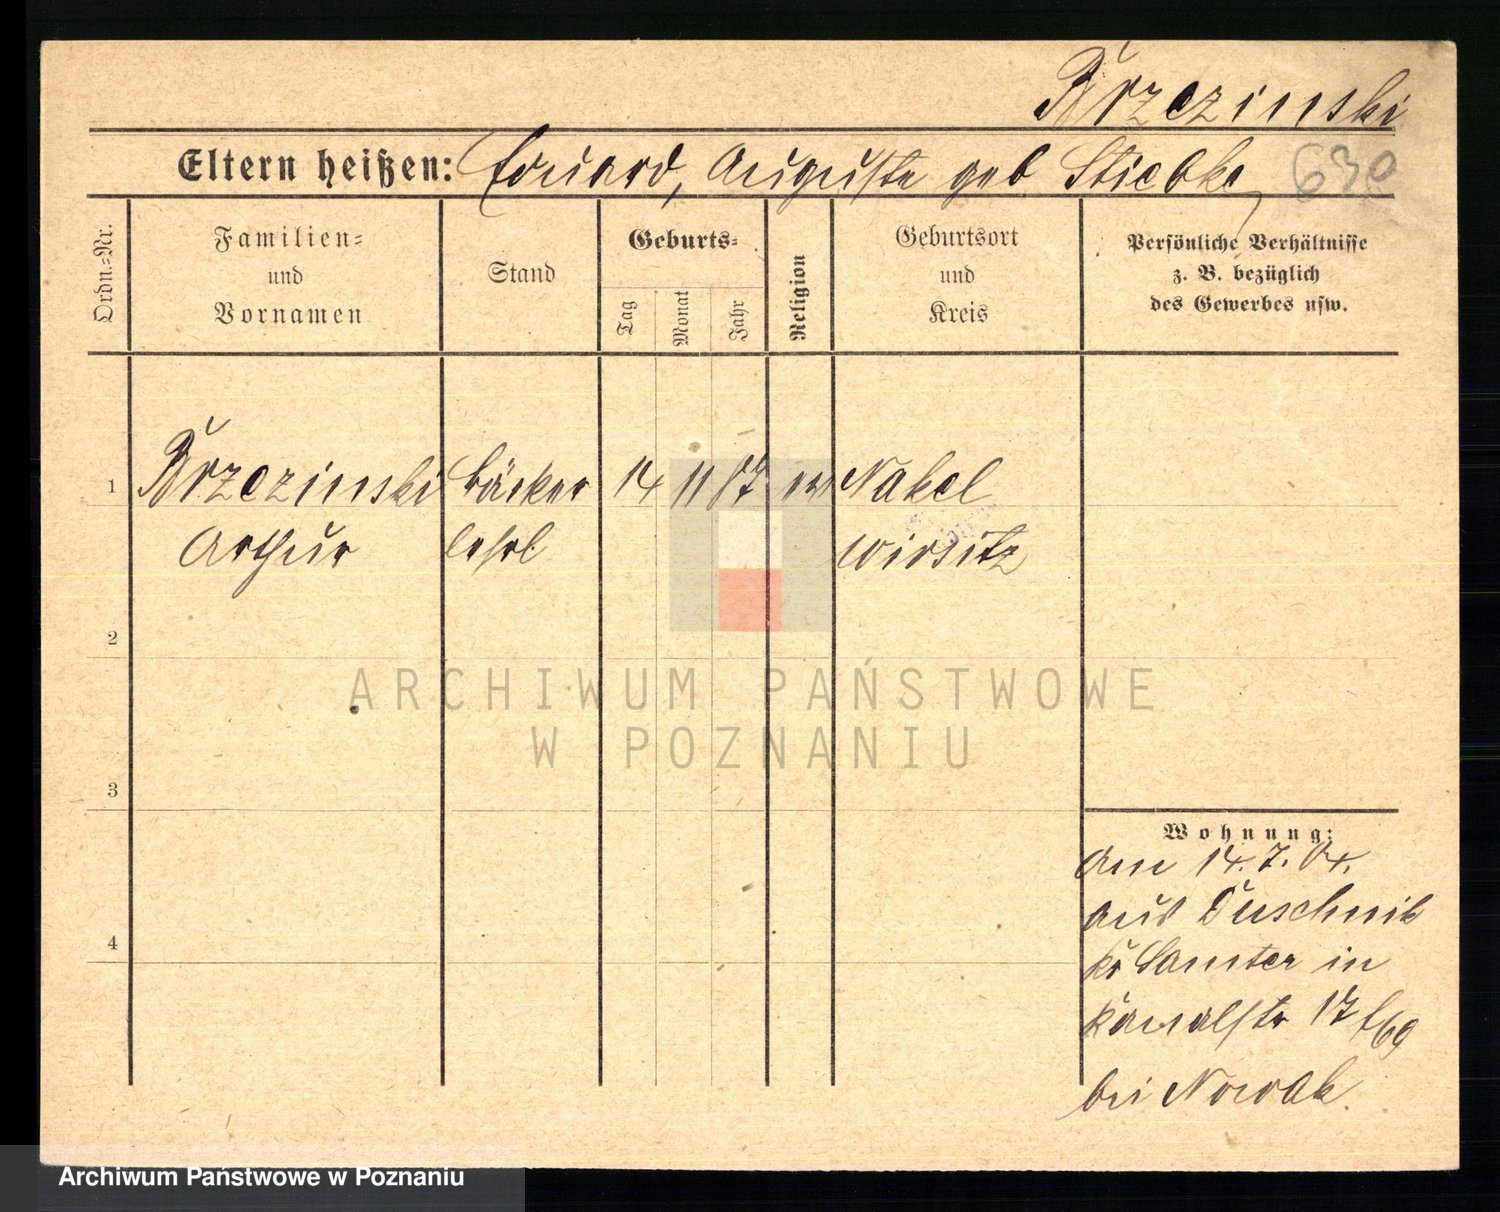 Brzezinski
Eltern heißen: Eduard, Auguste geb Stiebke
630
Ordn.-Nr.
Familien-
und
Vornamen
Stand
Geburts-
Tag
Monat
Jahr
Religion
Geburtsort
und
Kreis
Persönliche Verhältnisse
z. B. bezüglich
des Gewerbes usw.
1 Brzezinski Bäcker 14 11 87 ev Nakel
Arthur lehrl Wirsitz
2
3
4
Wohnung:
Am 14.7.04.
aus Duschnik
Kr Samter in
Kanalstr 17
bei Nowak.
ARCHIWUM PAŃSTWOWE
W POZNANIU
Archiwum Państwowe w Poznaniu